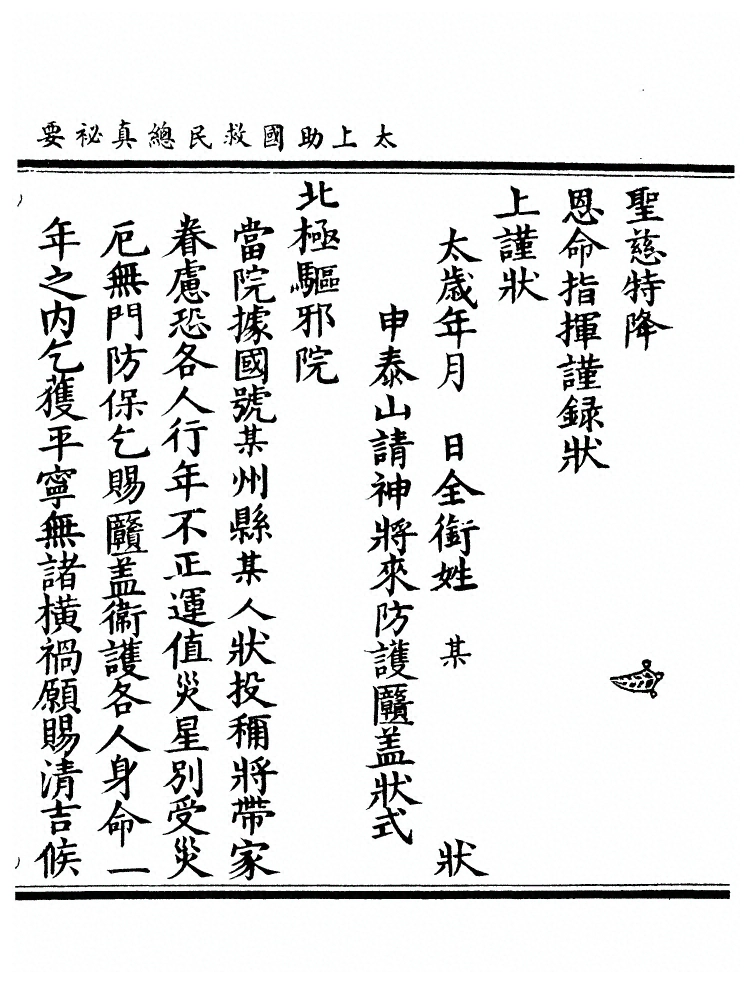 太上助國救民總真祕要
聖慈特降
恩命指揮謹録狀
上謹狀
太歲年月 日全銜姓 某 狀
申泰山請神將來防護盖狀式
北極驅邪院
當院據國號某州縣某人狀投稱將帶家
眷慮恐各人行年不正運值災星別受災
厄無門防保乞賜盖衛護各人身命一
年之内乞獲平寧無諸橫禍願賜清吉候